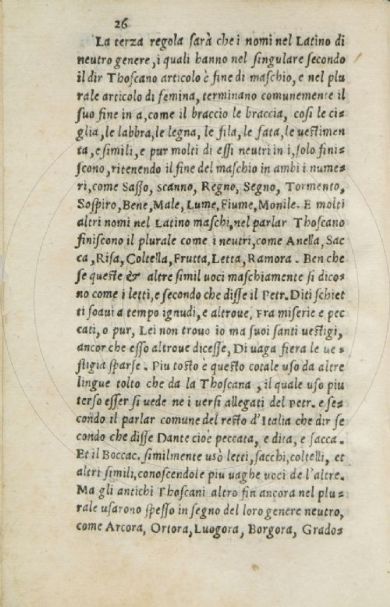 26
La terza regola sarà che i nomi nel Latino di
neutro genere, i quali hanno nel singulare secondo
il dir Thoscano articolo e fine di maschio, e nel plu
rale articolo di femina, terminano comunemente il
suo fine in a, come il braccio le braccia, cosi le ci=
glia, le labbra, le legna, le fila, le fata, le uestimen
ta, e simili, e pur molti di essi neutri in i, solo fini=
scono, ritenendo il fine del maschio in ambi i nume=
ri, come Sasso, scanno, Regno, Segno, Tormento,
Sospiro, Bene, Male, Lume, Fiume, Monile. E molti
altri nomi nel Latino maschi, nel parlar Thoscano
finiscono il plurale come i neutri, come Anella, Sac
ca, Risa, Coltella, Frutta, Letta, Ramora. Ben che
se queste & altre simil uoci maschiamente si dico=
no come i letti, e secondo che disse il Petr. Diti schiet
ti soaui a tempo ignudi, e altroue, Fra miserie e pec
cati, o pur, Lei non trouo io ma suoi santi uestigi,
ancor che esso altroue dicesse, Di uaga fiera le ue=
stigia sparse. Piu tosto è questo cotale uso da altre
lingue tolto che da la Thoscana, il quale uso piu
terso esser si uede ne i uersi allegati del Petr. e se=
condo il parlar comune del resto d'Italia che dir se
condo che disse Dante cioè peccata, e dita, e sacca.
Et il Boccac. similmente usò letti, sacchi, coltelli, et
altri simili, conoscendole piu uaghe uoci de l'altre.
Ma gli antichi Thoscani altro fin ancora nel plu=
rale usarono spesso in segno del loro genere neutro,
come Arcora, Ortora, Luogora, Borgora, Grado=